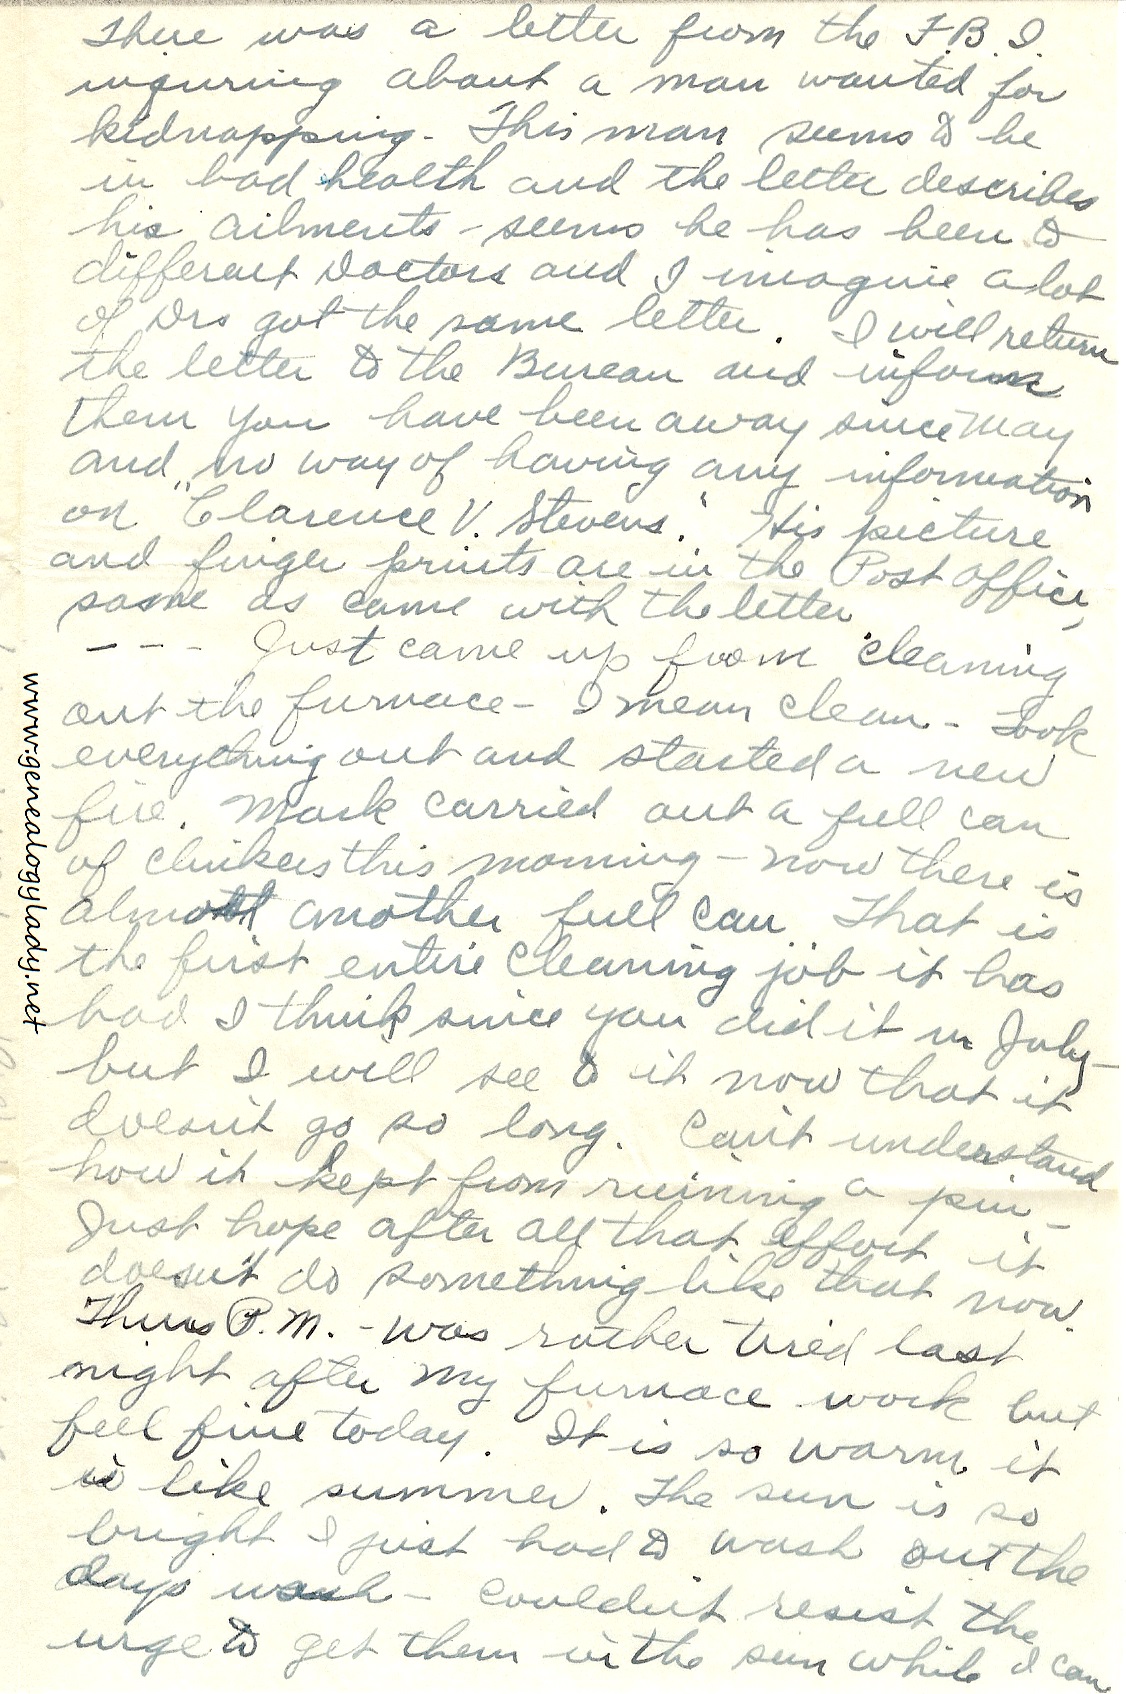 There was a letter from the F.B.I.
inquiring about a man wanted for
kidnapping - This man seems to be
in bad health and the letter describes
his ailments - seems he has been to
different Doctors and I imagine a lot
of Drs got the same letter. I will return
the letter to the Bureau and inform
them you have been away since May
and no way of having any information
on "Clarence V. Stevens." His picture
and finger prints are in the Post office,
same as came with the letter.
- - - Just came up from cleaning
out the furnace - I mean clean - Took
everything out and started a new
fire. Mark carried out a full can
of clinkers this morning - now there is
almost another full can. That is
the first entire cleaning job it has
had I think since you did it in July -
but I will see to it now that it
doesn't go so long. Can't understand
how it kept from ruining a pin -
Just hope after all that effort it
doesn't do something like that now.
Thurs P.M. - was rather tired last
night after my furnace work but
feel fine today. It is so warm it
is like summer. The sun is so
bright I just had to wash out the
days wash - couldn't resist the
urge to get them in the sun while I can
www.genealogylady.net